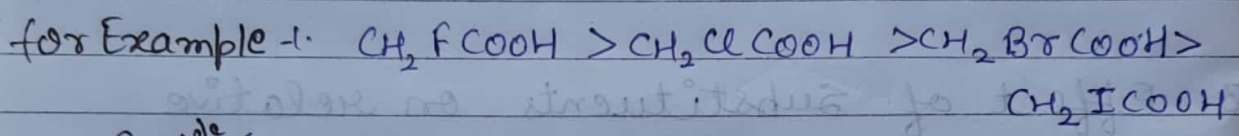 for Example -1. CH₂FCOOH > CH₂ClCOOH > CH₂BrCOOH >
CH₂ICOOH